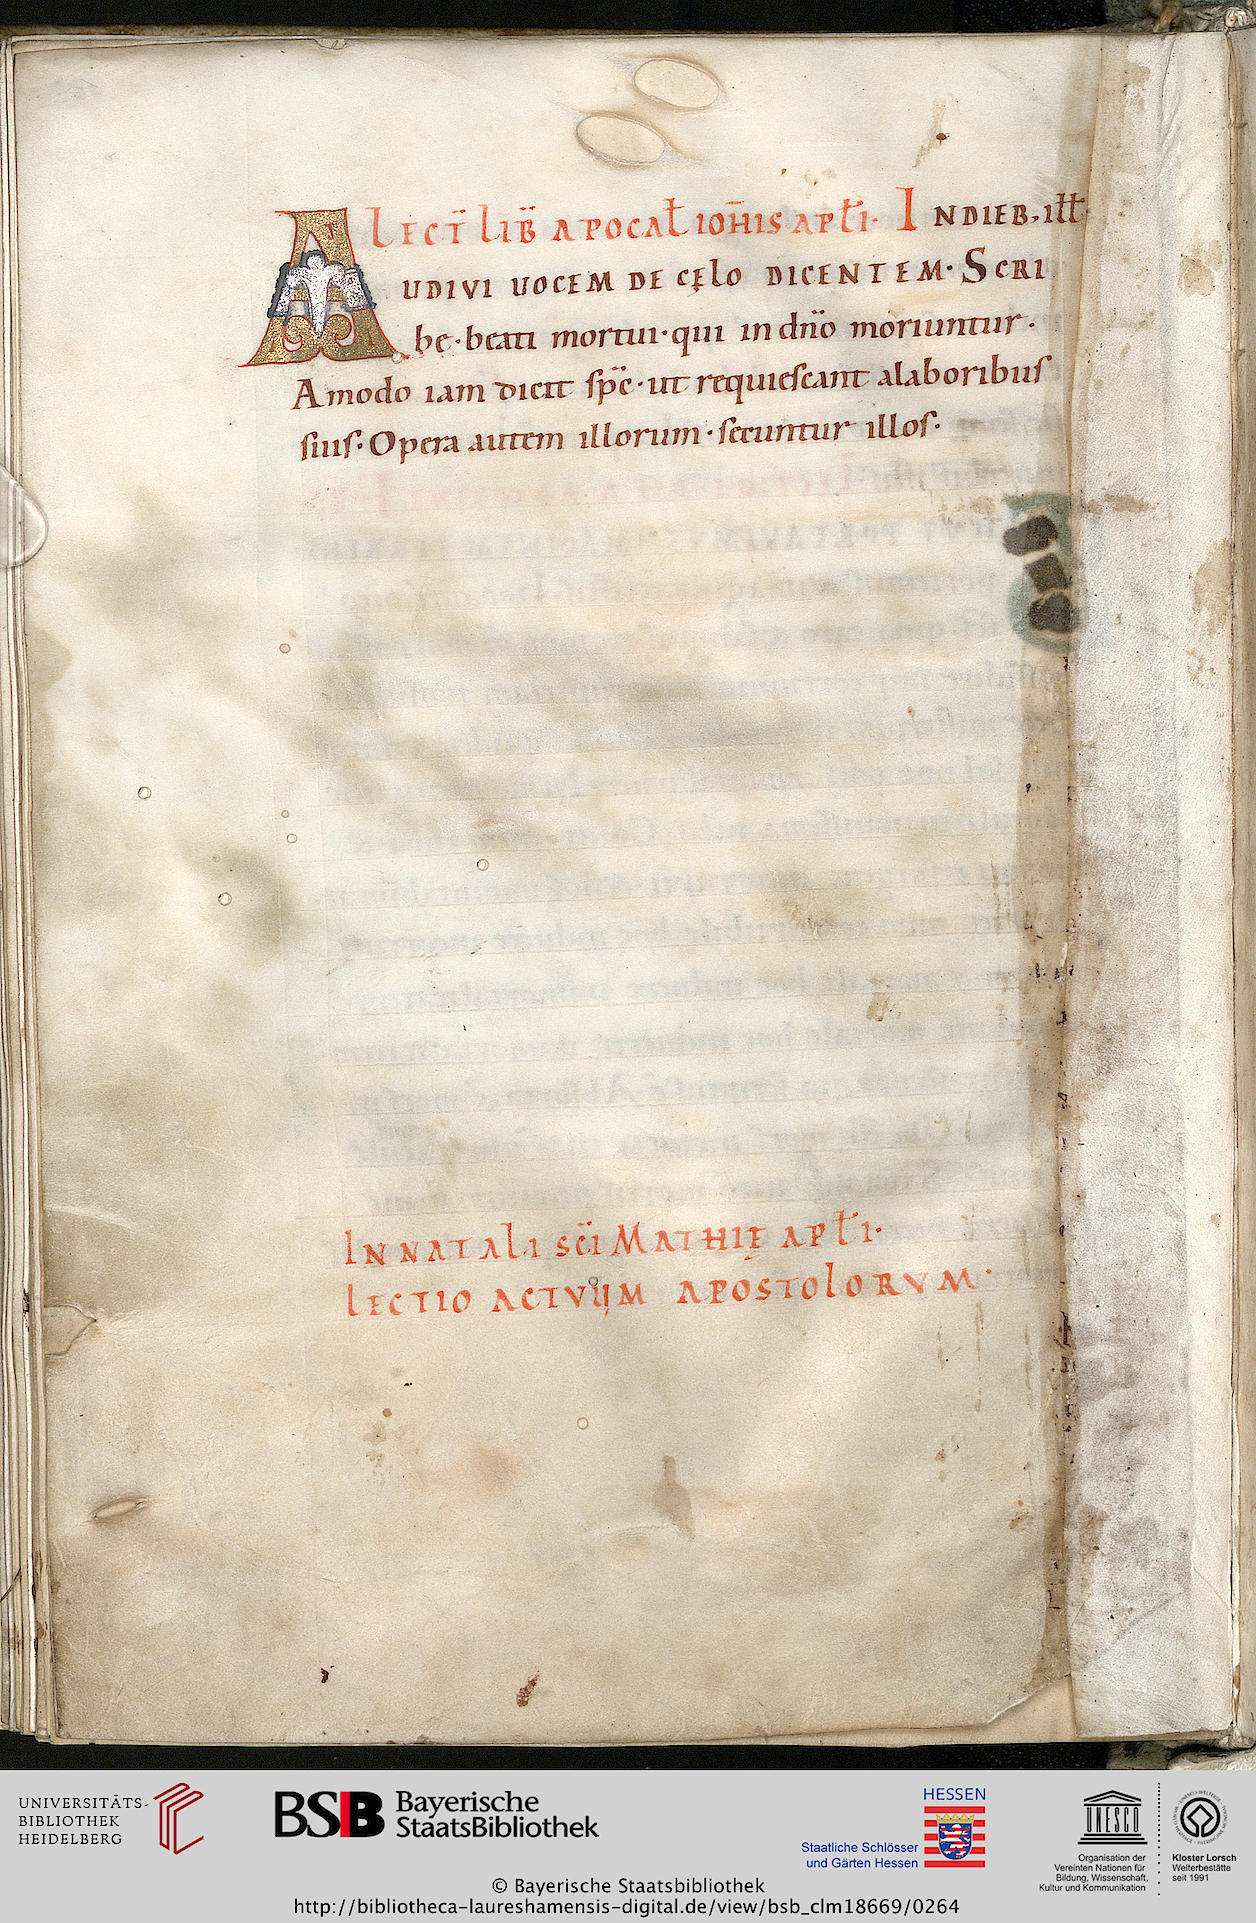 LECT̄ LIB̄ APOCAL̄ IOH̄IS APL̄I· INDIEB; ILL̄
AUDIVI UOCEM DE CĘLO DICENTEM· SCRI
be· beati mortui· qui in dn̄o moriuntur·
Amodo iam dicit sp̄c· ut requiescant alaboribus
suis· Opera autem illorum· secuntur illos·
IN NATALI SC̄I MATHIĘ APL̄I·
LECTIO ACTVUM APOSTOLORVM·
UNIVERSITÄTS-
BIBLIOTHEK
HEIDELBERG
BSB Bayerische
StaatsBibliothek
HESSEN
Staatliche Schlösser
und Gärten Hessen
UNESCO
Organisation der
Vereinten Nationen für
Bildung, Wissenschaft,
Kultur und Kommunikation
Kloster Lorsch
Welterbestätte
seit 1991
© Bayerische Staatsbibliothek
http://bibliotheca-laureshamensis-digital.de/view/bsb_clm18669/0264